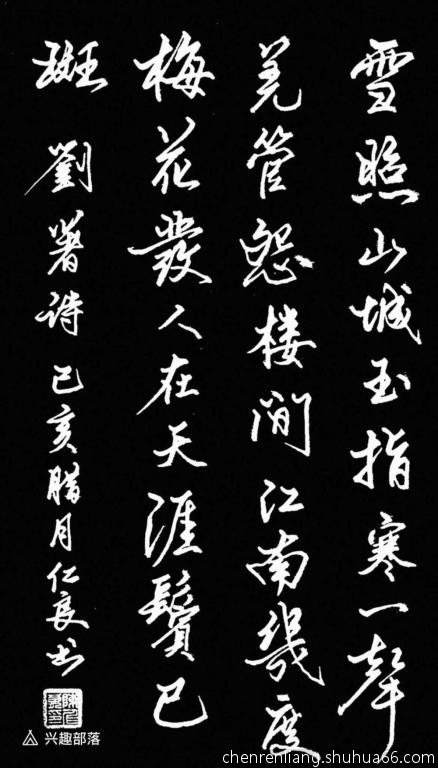 雪照山城玉指寒一聲
羌管怨楼间江南幾度
梅花發人在天涯鬢已
斑 劉著詩 己亥腊月仁良书
兴趣部落
chenrenliang.shuhua66.com